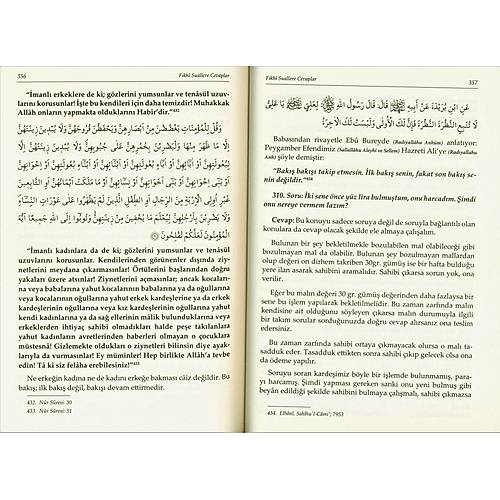 356
Fıkhî Suallere Cevaplar
"İmanlı erkeklere de ki; gözlerini yumsunlar ve tenâsül uzuv-
larını korusunlar! İşte bu kendileri için daha temizdir! Muhakkak
Allâh onların yapmakta olduklarını Habîr'dir."432
وَقُلْ لِلْمُؤْمِنَاتِ يَغْضُضْنَ مِنْ أَبْصَارِهِنَّ وَيَحْفَظْنَ فُرُوجَهُنَّ وَلَا يُبْدِينَ زِينَتَهُنَّ
إِلَّا مَا ظَهَرَ مِنْهَا وَلْيَضْرِبْنَ بِخُمُرِهِنَّ عَلَى جُيُوبِهِنَّ وَلَا يُبْدِينَ زِينَتَهُنَّ إِلَّا
لِبُعُولَتِهِنَّ أَوْ آبَائِهِنَّ أَوْ آبَاءِ بُعُولَتِهِنَّ أَوْ أَبْنَائِهِنَّ أَوْ أَبْنَاءِ بُعُولَتِهِنَّ أَوْ إِخْوَانِهِنَّ
أَوْ بَنِي إِخْوَانِهِنَّ أَوْ بَنِي أَخَوَاتِهِنَّ أَوْ نِسَائِهِنَّ أَوْ مَا مَلَكَتْ أَيْمَانُهُنَّ أَوِ التَّابِعِينَ
غَيْرِ أُولِي الْإِرْبَةِ مِنَ الرِّجَالِ أَوِ الطِّفْلِ الَّذِينَ لَمْ يَظْهَرُوا عَلَى عَوْرَاتِ النِّسَاءِ
وَلَا يَضْرِبْنَ بِأَرْجُلِهِنَّ لِيُعْلَمَ مَا يُخْفِينَ مِنْ زِينَتِهِنَّ وَتُوبُوا إِلَى اللَّهِ جَمِيعًا أَيُّهَ
الْمُؤْمِنُونَ لَعَلَّكُمْ تُفْلِحُونَ
"İmanlı kadınlara da de ki; gözlerini yumsunlar ve tenâsül
uzuvlarını korusunlar. Kendilerinden görünenler dışında ziy-
netlerini meydana çıkarmasınlar! Örtülerini başlarından doğru
yakaları üzere atsınlar! Ziynetlerini açmasınlar; ancak kocaları-
na veya babalarına yahut kocalarının babalarına ya da oğullarına
veya kocalarının oğullarına yahut erkek kardeşlerine ya da erkek
kardeşlerinin oğullarına veya kız kardeşlerinin oğullarına yahut
kendi kadınlarına ya da sağ ellerinin mâlik bulunduklarına veya
erkeklerden ihtiyaç sahibi olmadıkları halde peşe takılanlara
yahut kadınların avretlerinden haberleri olmayan o çocuklara
müstesnâ! Gizlemekte oldukları o ziynetleri bilinsin diye ayak-
larıyla da vurmasınlar! Ey müminler! Hep birlikte Allâh'a tevbe
edin! Tâ ki siz felâha erebilesiniz!"433
Ne erkeğin kadına ne de kadını erkeğe bakması câiz değildir. Bu
bakış; ilk bakış değil, devam ettirilen bakıştır.
432. Nûr Sûresi: 30
433. Nûr Sûresi: 31
Fıkhî Suallere Cevaplar
357
عَنِ ابْنِ بُرَيْدَةَ عَنْ أَبِيهِ قَالَ، قَالَ رَسُولُ اللهِ ﷺ لِعَلِيٍّ يَا عَلِيُّ
لَا تُتْبِعِ النَّظْرَةَ النَّظْرَةَ فَإِنَّ لَكَ الْأُولَى وَلَيْسَتْ لَكَ الْآخِرَةُ
Babasından rivayetle Ebû Bureyde (Radıyallâhu Anhüm) anlatıyor:
Peygamber Efendimiz (Sallallâhu Aleyhi ve Sellem) Hazreti Ali'ye (Radıyallâhu
Anh) şöyle demiştir:
"Bakış bakışı takip etmesin. İlk bakış senin, fakat son bakış se-
nin değildir."434
310. Soru: İki sene önce yüz lira bulmuştum, onu harcadım. Şimdi
onu nereye vermem lazım?
Cevap: Bu konuyu sadece soruya değil de soruyla bağlantılı olan
konulara da cevap olacak şekilde ele almaya çalışalım.
Bulunan bir şey bekletilmekle bozulabilen mal olabileceği gibi
bozulmayan mal da olabilir. Bulunan şey bozulmayan mallardan
olup değeri on dirhem takriben 30gr. gümüş ise bir hafta bulduğu
yere ilan asarak sahibini aramalıdır. Sahibi çıkarsa sorun yok, ona
verilir.
Eğer bu malın değeri 30 gr. gümüş değerinden daha fazlaysa bir
sene bu işlem yapılarak bekletilmelidir. Bu zaman zarfında malın
kendisine ait olduğunu söyleyen çıkarsa malın durumuyla ilgili
bir takım sorular sorduğunuzda doğru cevap alırsanız ona teslim
edersiniz.
Bu zaman zarfında sahibi ortaya çıkmayacak olursa o malı tasa-
dduk eder. Tasadduk ettikten sonra sahibi çıkıp gelecek olsa ona
da ödeme yapılır.
Soruyu soran kardeşimiz, bir sene beklemeden bulmuş, para-
yı harcamış. Şimdi yapması gereken sanki onu yeni bulmuş gibi
beyan edildiği şekilde sahibini bulmaya çalışmalı, sahibi çıkmazsa
434. Elbânî, Sahîhu'l-Câmi'; 7953